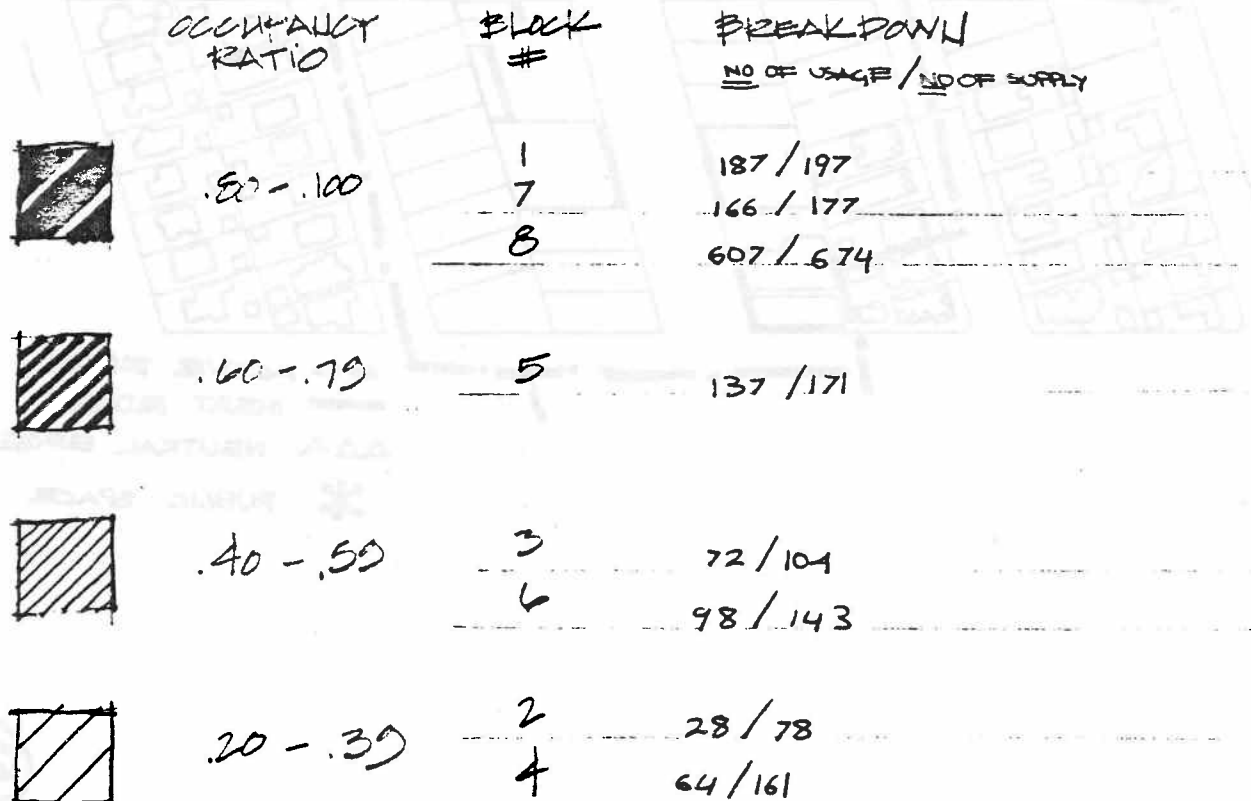 OCCUPANCY RATIO
BLOCK #
BREAKDOWN
NO OF USAGE / NO OF SUPPLY
.80 - .100
1 187 / 197
7 166 / 177
8 607 / 674
.60 - .79 5 137 / 171
.40 - .59
3 72 / 104
6 98 / 143
.20 - .39
2 28 / 78
4 64 / 161
NEUTRAL
PUBLIC SPACE